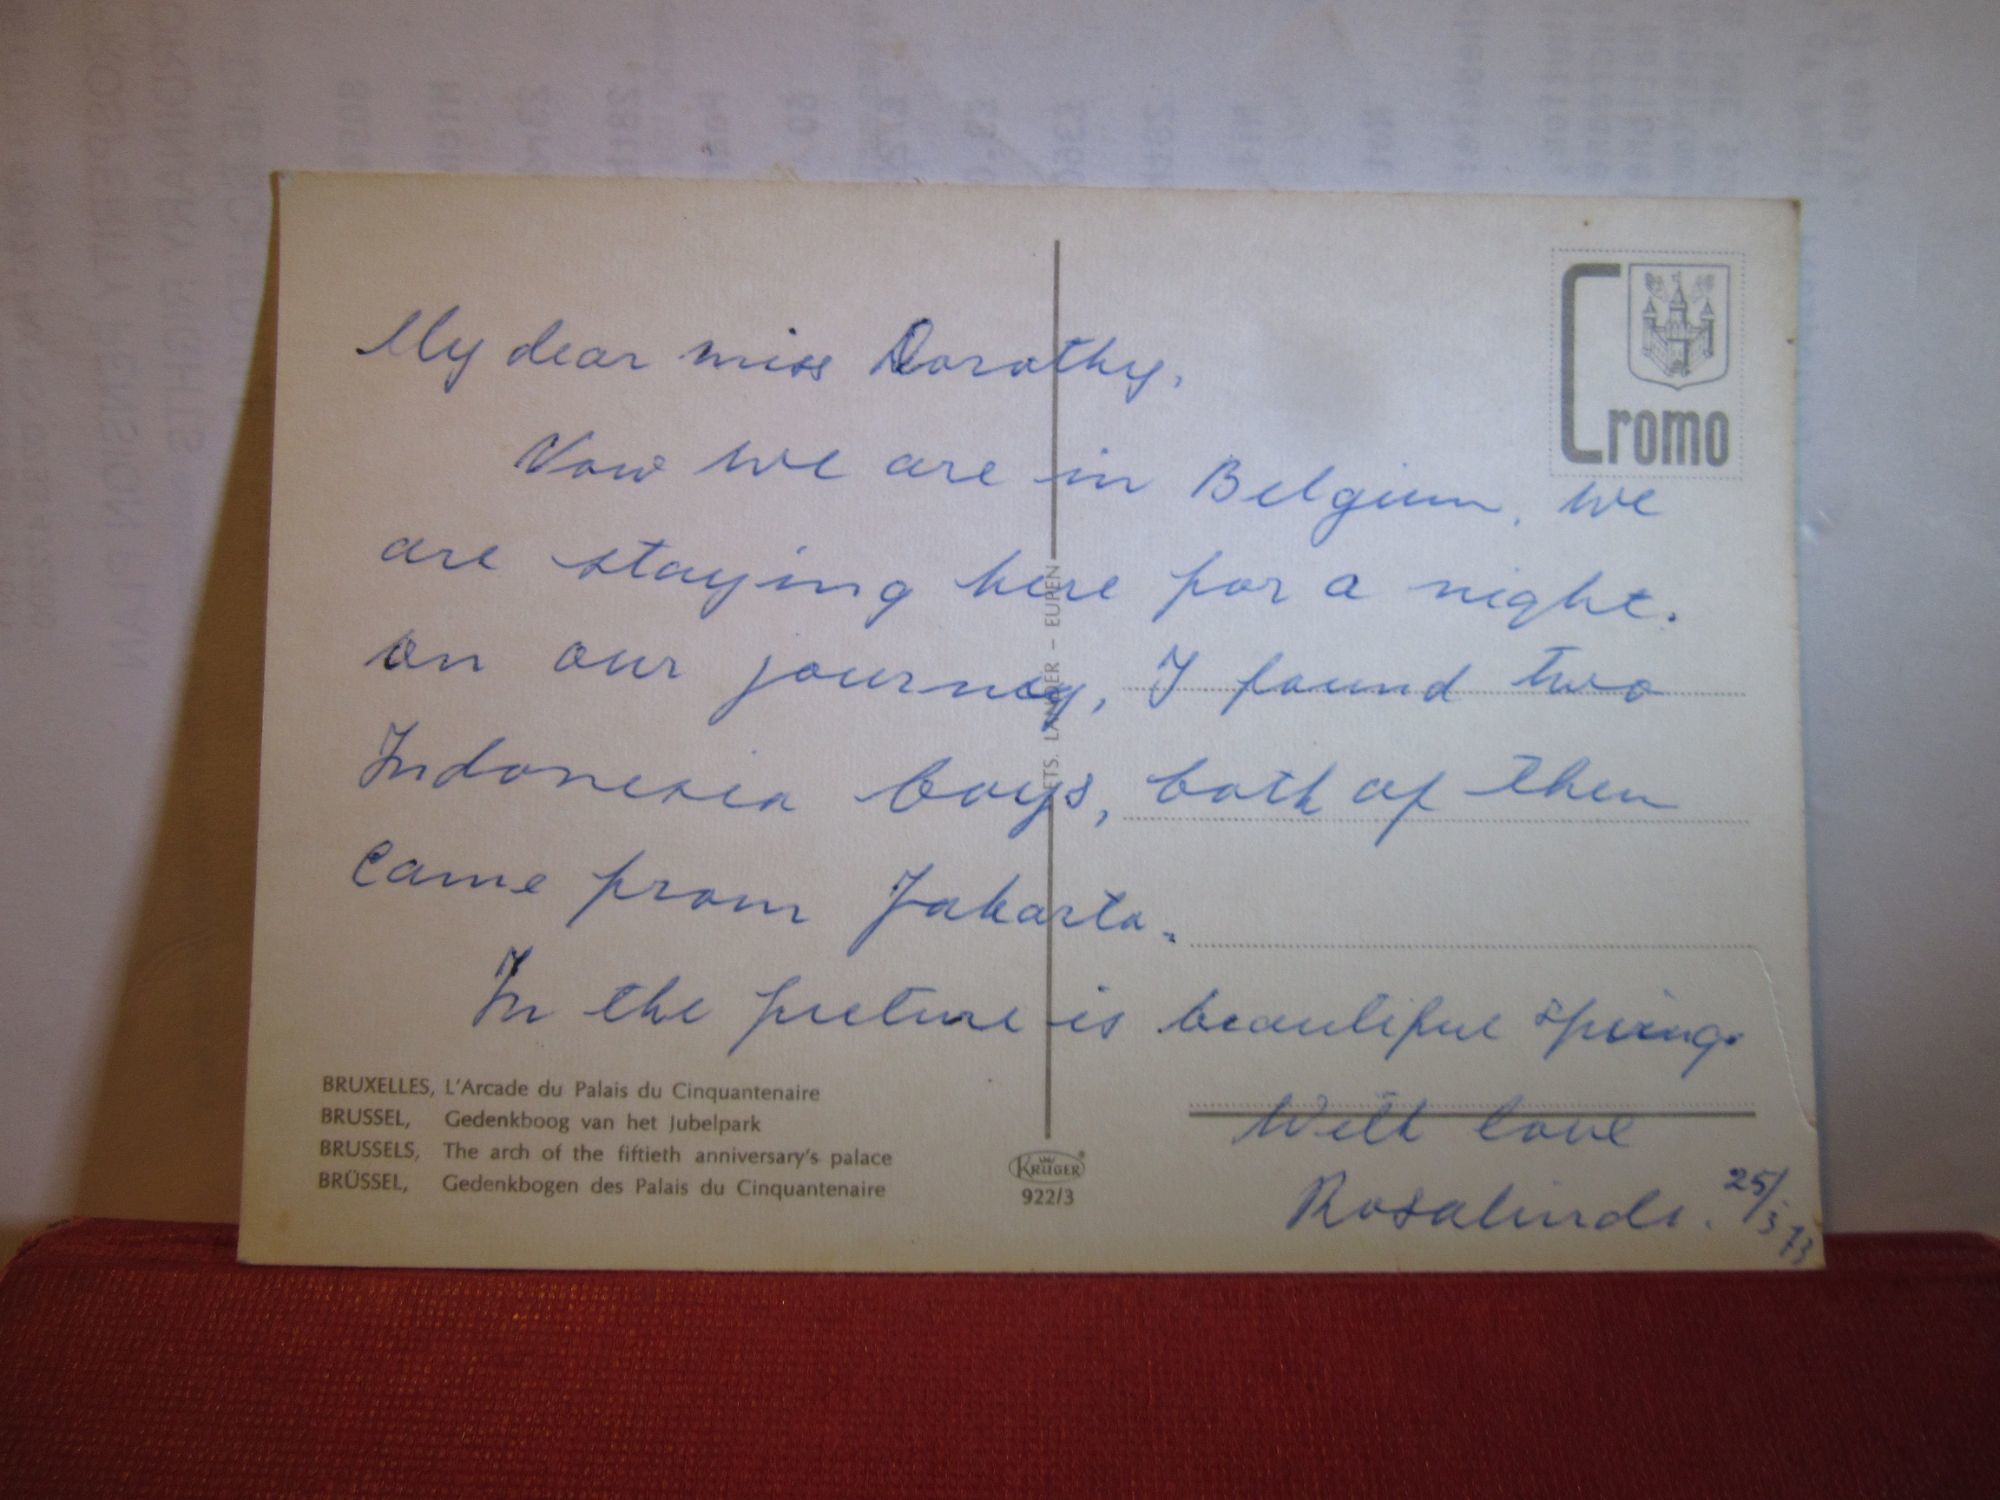 My dear miss Dorothy,
Now we are in Belgium, we
are staying here for a night.
on our journey, I found two
Indonesia boys, both of them
came from Jakarta.
In the picture is beautiful spring.
With love
Rosalinda. 25/3 73
Cromo
ETS. LANDER - EUPEN
BRUXELLES, L'Arcade du Palais du Cinquantenaire
BRUSSEL, Gedenkboog van het Jubelpark
BRUSSELS, The arch of the fiftieth anniversary's palace
BRÜSSEL, Gedenkbogen des Palais du Cinquantenaire
KRÜGER®
922/3